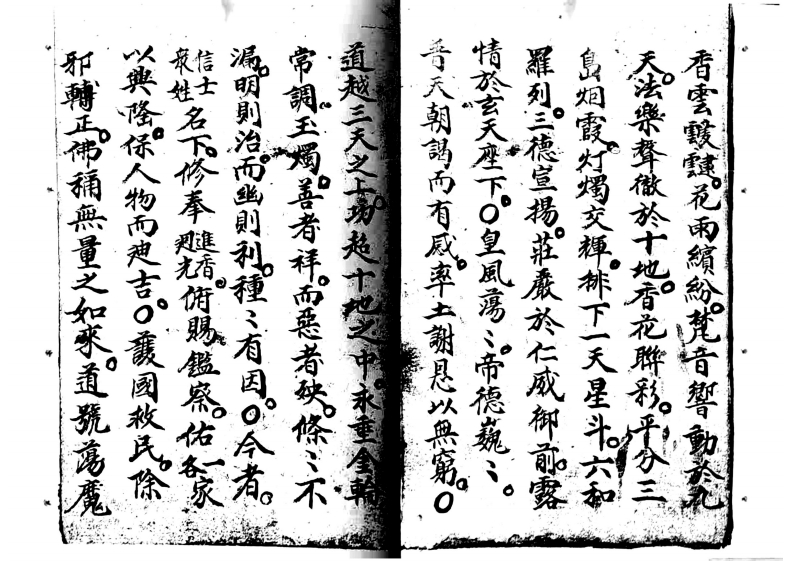 香雲靉靆。花雨繽紛。梵音響動於九
天。法樂聲徹於十地。香花聯彩。平分三
島烟霞。灯燭交輝。排下一天星斗。六和
羅列。三德宣揚。莊嚴於仁威御前。露
情於玄天座下。〇皇風蕩〻。帝德巍〻。
普天朝謁而有感。率土謝恩以無窮。〇
道越三天之上。功超十地之中。永垂金輪
常調玉燭。善者祥。而惡者殃。條〻不
漏。明則治而幽則利。種〻有因。〇今者。
信士衆姓名下。修奉進香廻光。俯賜鑑察。佑一各家
以興隆。保人物而迪吉。〇護國救民。除
邪轉正。佛稱無量之如來。道號蕩魔